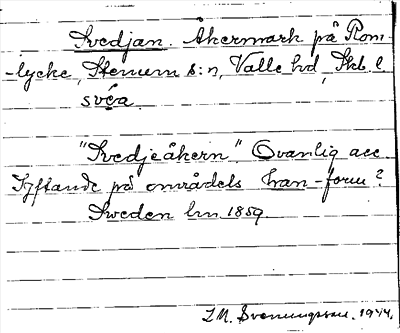 Svedjan. Åkermark på Rom-
-lycke, Stenum s:n, Valle hd, Skb. l.
svéa.
"Svedjeåkern". Ovanlig acc.
Syftande på områdets han-form?
Sweden lm 1859.
I.M. Svenungsson. 1944.